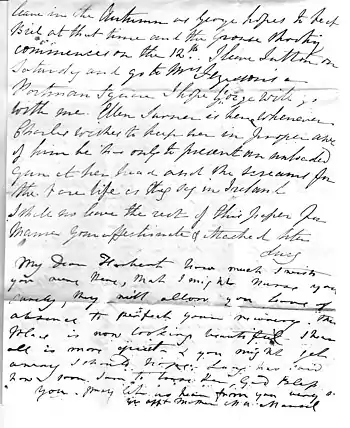 leave in the Autumn as George hopes to be at
at that time and the Grouse shooting
commences on the 12th. I leave on
Saturday and go to Mrs
Portman Square I hope George will go
with me. Ellen Turner is here whenever
Charles wishes to keep her in proper awe
of him he has only to present an unloaded
gun at her head and she screams for
the bare life as they say in Ireland
I shall no leave the rest of this paper for
Mamma your affectionate & attached sister
Lucy
My Dear Herbert how much I wish
you were here, that I might nurse you
surely, they will allow you leave of
absence to perfect your recovery, the
place is now looking beautiful
all is more quiet & you might get
away I should hope. Lucy has said
how soon I am to leave her, God bless
you. May we hear from you very soon
yr affte mother